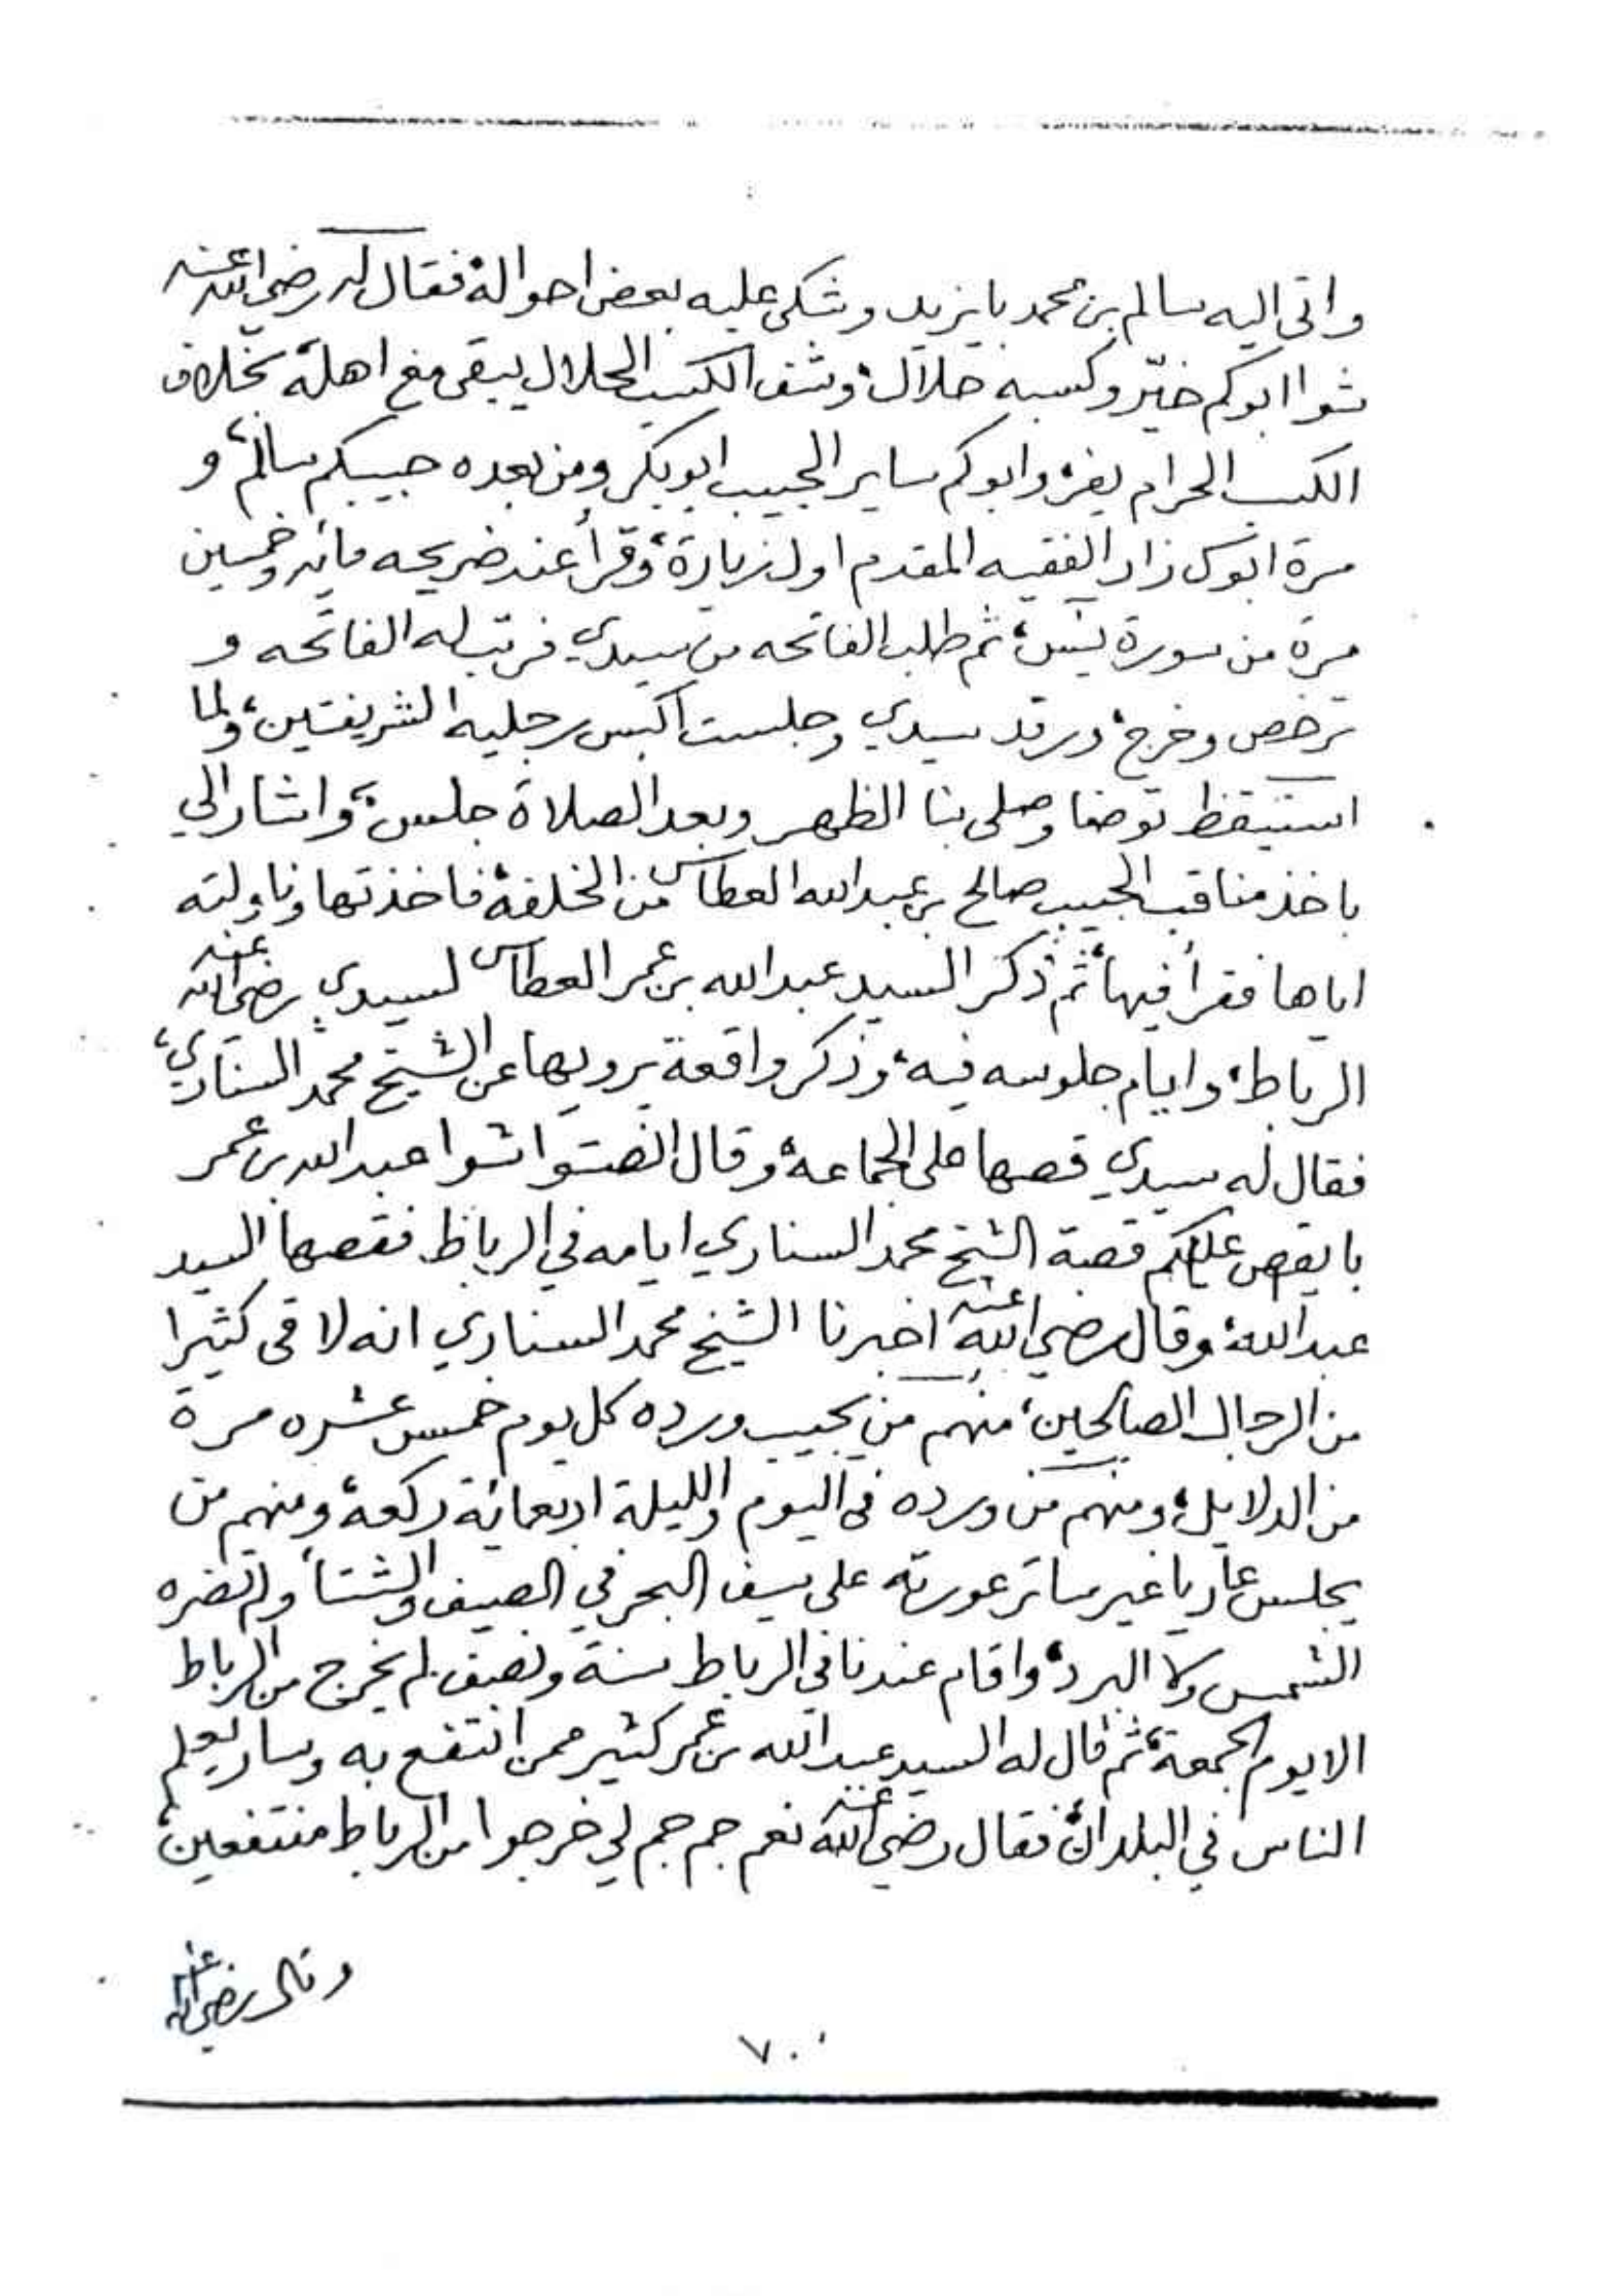 واتى اليه سالم بن محمد بايزيد وشكى عليه بعض احواله، فقال له رضي الله عنه
شوا ابوكم خيّر وكسبه حلال، وشف الكسب الحلال يبقى مع اهله بخلاف
الكسب الحرام يفر، وابوكم ساير الحبيب ابوبكر ومن بعده حبيبكم سالم، و
مرة ابوك زار الفقيه المقدم اول زيارة، وقرأ عند ضريحه مائه وخمسين
مرة من سورة يس، ثم طلب الفاتحه من سيدي فرتب له الفاتحه و
ترخص وخرج، ورقد سيدي وجلست اكبس رجليه الشريفتين، ولما
استيقظ توضا وصلى بنا الظهر وبعد الصلاة جلس، واشار الي
باخذ مناقب الحبيب صالح بن عبدالله العطاس من الخلفة، فاخذتها وناولته
اياها فقرأ فيها، ثم ذكر السيد عبدالله بن عمر العطاس لسيدي رضي الله عنه
الرباط، وايام جلوسه فيه، وذكر واقعة يرويها عن الشيخ محمد السناري،
فقال له سيدي قصها على الجماعة، وقال انصتوا شوا عبدالله بن عمر
با يقص عليكم قصة الشيخ محمد السناري ايامه في الرباط فقصها السيد
عبدالله، وقال رضي الله عنه اخبرنا الشيخ محمد السناري انه لاقى كثيرا
من الرجال الصالحين، منهم من يجيب ورده كل يوم خمس عشره مرة
من الدلايل، ومنهم من ورده في اليوم والليلة اربعمائة ركعة، ومنهم من
يجلس عاريا غير ساتر عورته على سيف البحر في الصيف والشتاء ولم تضره
الشمس ولا البرد، واقام عندنا في الرباط سنة ونصف لم يخرج من الرباط
الا يوم الجمعة، ثم قال له السيد عبدالله بن عمر كثير ممن انتفع به وسار يعلم
الناس في البلدان، فقال رضي الله عنه نعم جم جم لي خرجوا من الرباط منتفعين،
وقال رضي الله عنه
٧٠